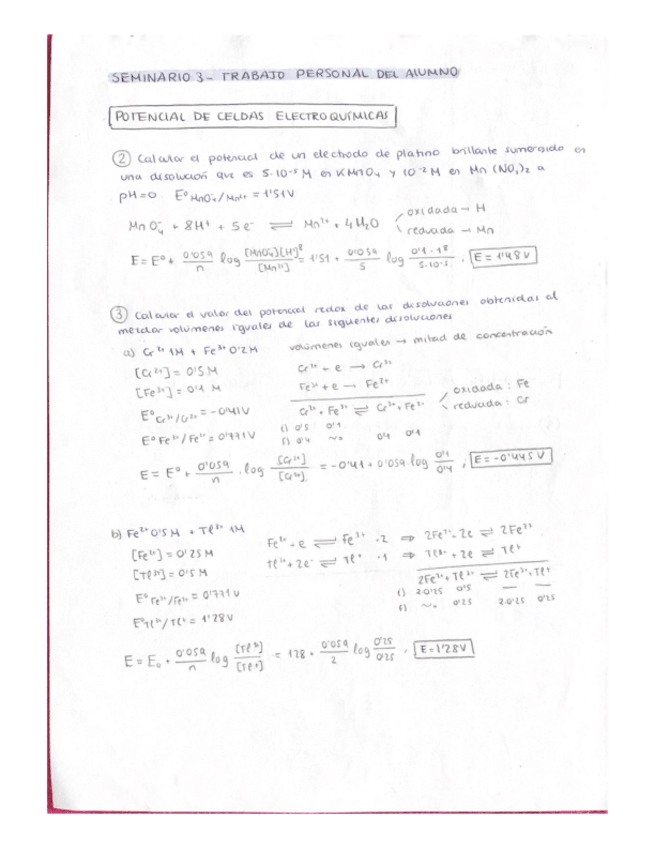 SEMINARIO 3 - TRABAJO PERSONAL DEL ALUMNO
POTENCIAL DE CELDAS ELECTROQUÍMICAS
② Calcular el potencial de un electrodo de platino brillante sumergido en
una disolución que es 5·10⁻³ M en KMnO₄ y 10⁻² M en Mn(NO₃)₂ a
pH=0 E⁰ MnO₄⁻/Mn²⁺ = 1'51V
MnO₄⁻ + 8H⁺ + 5e⁻ ⇌ Mn²⁺ + 4H₂O
oxidada → H
reducida → Mn
E = E⁰ + 0'059/n log [MnO₄⁻][H]⁸/[Mn²⁺] = 1'51 + 0'059/5 log
E = 1'48V
③ Calcular el valor del potencial redox de las disoluciones obtenidas al
mezclar volúmenes iguales de las siguientes disoluciones
a) Cr²⁺ 1M + Fe³⁺ 0'2M volúmenes iguales → mitad de concentración
[Cr²⁺] = 0'5 M
[Fe³⁺] = 0'1 M
E⁰ Cr³⁺/Cr²⁺ = -0'41V
E⁰ Fe³⁺/Fe²⁺ = 0'771V
Fe³⁺ + e → Fe²⁺
Cr²⁺ + Fe³⁺ ⇌ Cr³⁺ + Fe²⁺
i) 0'5 0'1
f) 0'4 ~0 0'1 0'1
oxidada : Fe
reducida : Cr
E = E⁰ + 0'059/n · log [Cr³⁺]/[Cr²⁺] = -0'41 + 0'059 · log 0'1/0'4 , E = -0'445V
b) Fe²⁺ 0'5M + Tl³⁺ 1M
[Fe²⁺] = 0'25 M
[Tl³⁺] = 0'5 M
E⁰ Fe³⁺/Fe²⁺ = 0'771V
E⁰ Tl³⁺/Tl⁺ = 1'28V
Fe²⁺ - e ⇌ Fe³⁺ ·2 ⇒ 2Fe²⁺ - 2e ⇌ 2Fe³⁺
Tl³⁺ + 2e⁻ ⇌ Tl⁺ ·1 ⇒ Tl³⁺ + 2e ⇌ Tl⁺
2Fe²⁺ + Tl³⁺ ⇌ 2Fe³⁺ + Tl⁺
i) 2·0'25 0'5 — —
f) ~0 0'25 2·0'25 0'25
E = E₀ + 0'059/n log [Tl³⁺]/[Tl⁺] = 1'28 + 0'059/2 log 0'25/0'25 , E = 1'28V